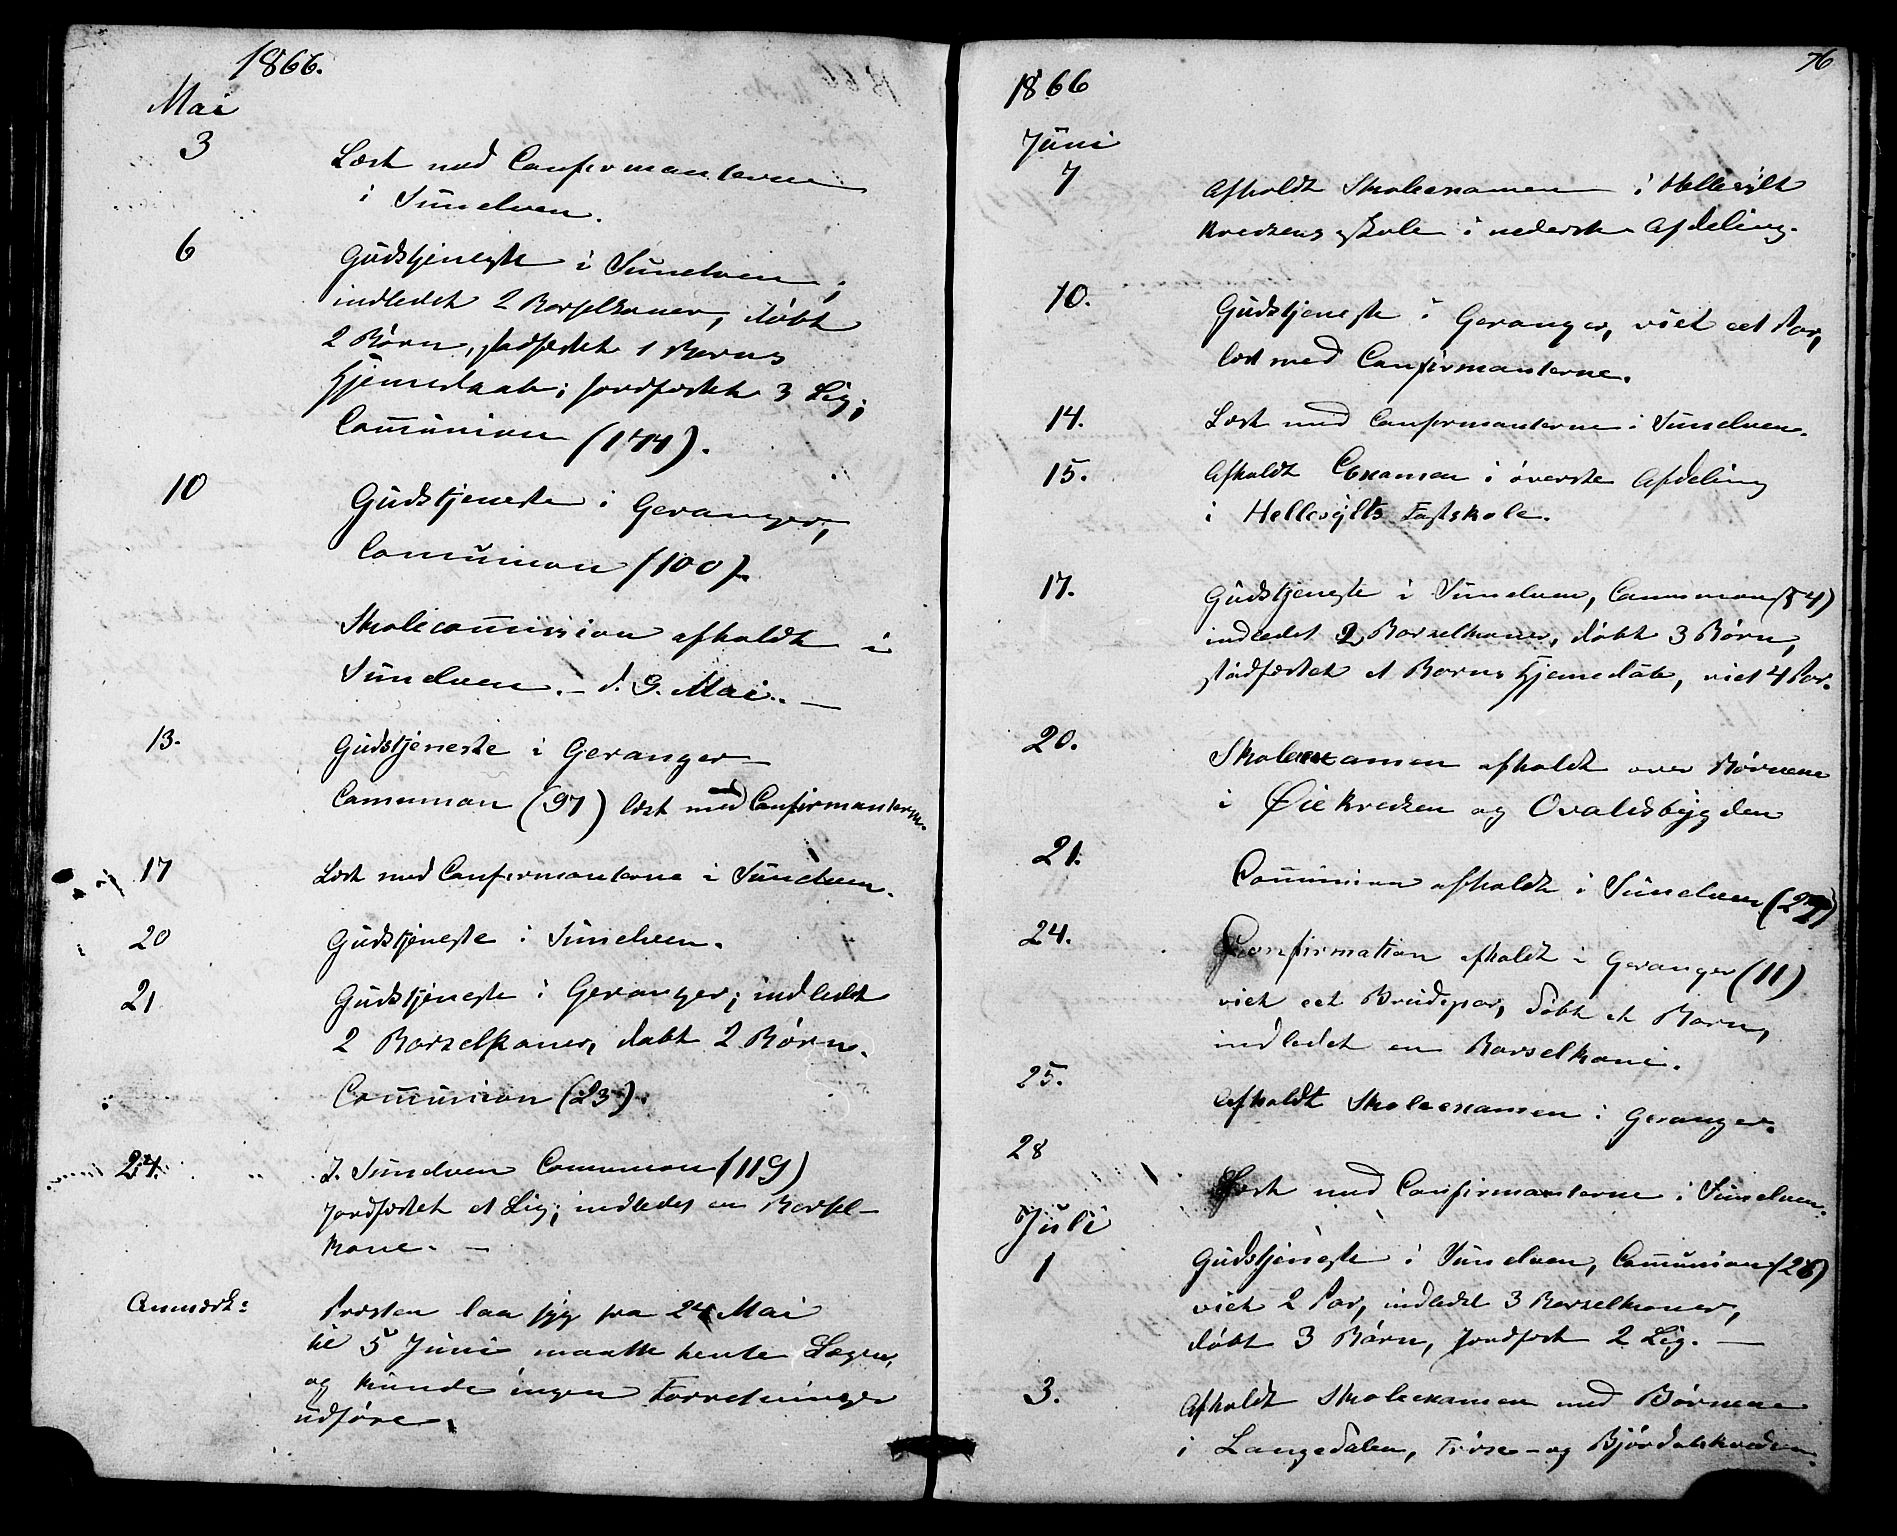 1866.
Mai
3
Læst med Confirmanterne
i Sunelven.
6
Gudstjeneste i Sunelven,
indledet 2 Barselkoner, døbt
2 Børn, stadfæstet 1 Barns
Hjemedaab; jordfæstet 3 Lig;
Com̅union (144).
10
Gudstjeneste i Geranger,
Comunion (100).
Skolecom̅ission afholdt i
Sunelven. – d. 9. Mai. –
13.
Gudstjeneste i Geranger
Communion (97) læst med Confirmanterne.
17
Læst med Confirmanterne i Sunelven.
20
Gudstjeneste i Sunelven.
21
Gudstjeneste i Geranger; indledet
2 Barselkoner, døbt 2 Børn.
Com̅union (23).
24.
I Sunelven Communion (119)
jordfæstet et Lig; indledet en Barsel-
kone. –
Anmærk:
Præsten laa syg fra 24 Mai
til 5 Juni maatte hente Læge,
og kunde ingen Forretninger
udføre.
76
1866
Juni
7
Afholdt Skoleexamen i Hellesylt
Kredsens skole i nederste Afdeling.
10.
Gudstjeneste i Geranger, viet eet Par,
læst med Confirmanterne.
14.
Læst med Confirmanterne i Sunelven.
15.
Afholdt Examen i øverste Afdeling
i Hellesylts Fastskole.
17.
Gudstjeneste i Sunelven, Communion (54)
indledet 2 Barselkoner, døbt 3 Børn,
stadfæstet et Barns Hjemedåb, viet 4 Par.
20.
Skoleexamen afholdt over Børnene
i Øiekredsen og Ovaldsbygden
21.
Com̅union afholdt i Sunelven (27)
24.
Confirmation afholdt i Geranger (11)
viet eet Brudepar, døbt et Barn,
indledet en Barselkone.
25.
Afholdt Skoleexamen i Geranger.
28
Læst med Confirmanterne i Sunelven.
Juli
1
Gudstjeneste i Sunelven, Com̅union (28)
viet 2 Par, indledet 3 Barselkoner,
døbt 3 Børn, Jordfæst 2 Lig. –
3.
Afholdt Skoleexamen med Børnene
i Langedalen, Frøse- og Bjørdalskredsen.